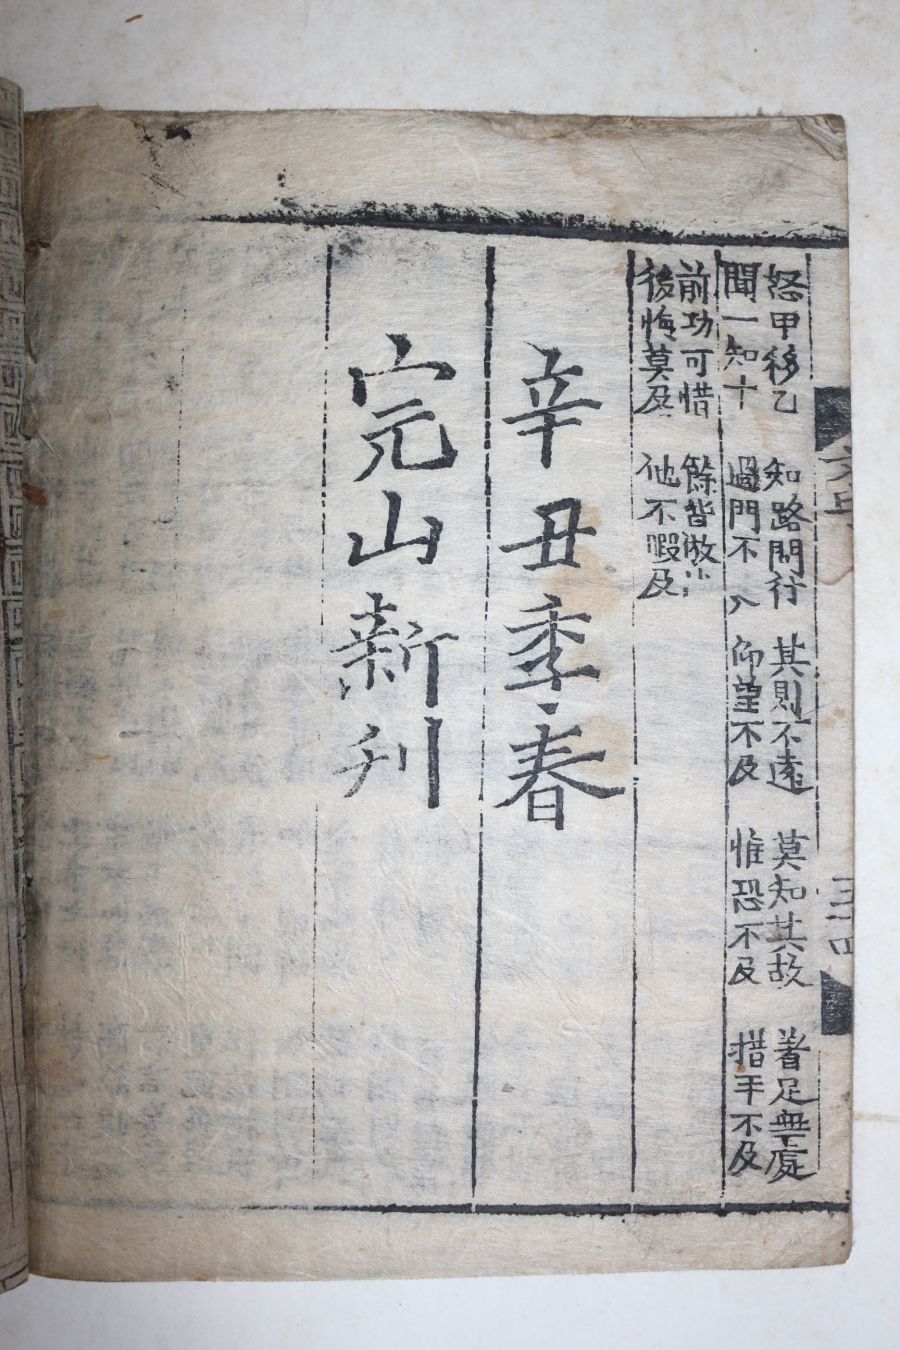 怒甲移乙 知路問行 其則不遠 莫知其故 着足無處
聞一知十 過門不入 仰望不及 惟恐不及 措手不及
前功可惜 餘皆倣此
後悔莫及 他不暇及
辛丑季春
完山新刊
三十四